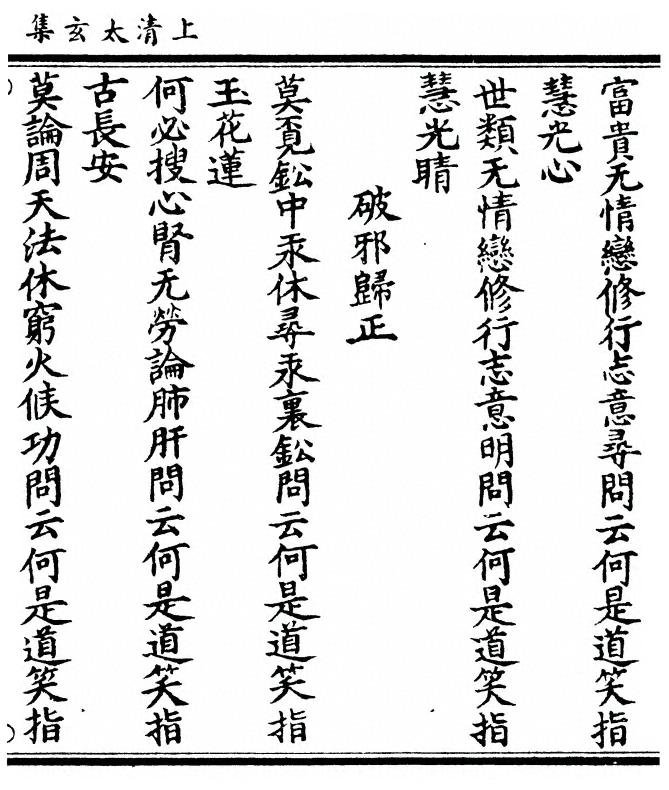 上清太玄集
富貴无情戀修行志意尋問云何是道笑指
慧光心
世類无情戀修行志意明問云何是道笑指
慧光睛
破邪歸正
莫覓鈆中汞休尋汞裏鈆問云何是道笑指
玉花蓮
何必搜心腎无勞論肺肝問云何是道笑指
古長安
莫論周天法休窮火候功問云何是道笑指